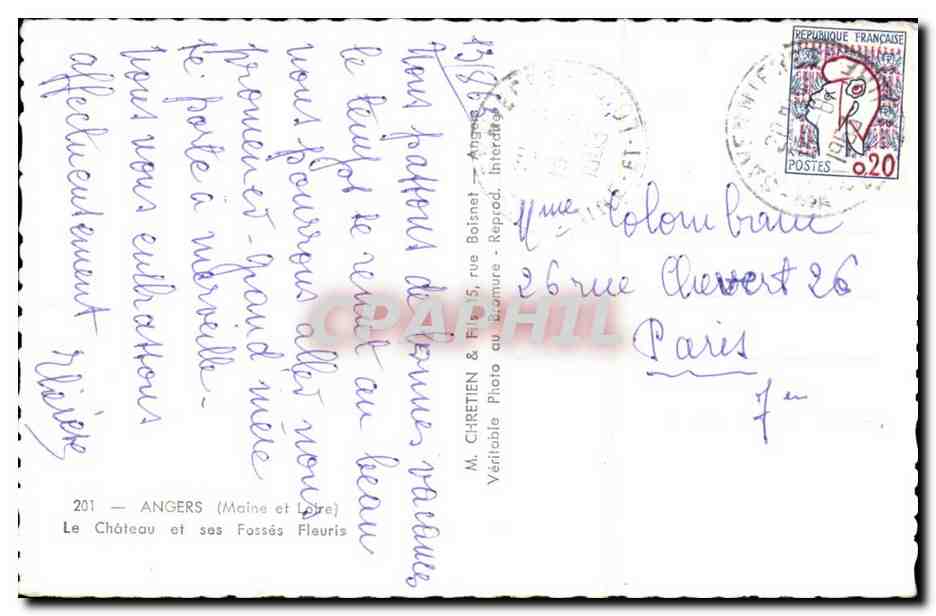 13/8/63
Nous passons de bonnes vacances
le temps se remet au beau
nous pourrons aller nous
promener - grand mère
se porte à merveille -
nous vous embrassons
affectueusement
201 — ANGERS (Maine et Loire)
Le Château et ses Fossés Fleuris
M. CHRETIEN & Fils 15, rue Boisnet — Angers
Véritable Photo au Bromure - Reprod. Interdite
CPAPHIL
REPUBLIQUE FRANÇAISE
POSTES 0,20
Mme Colombani
26 rue Chevert 26
Paris
7 en